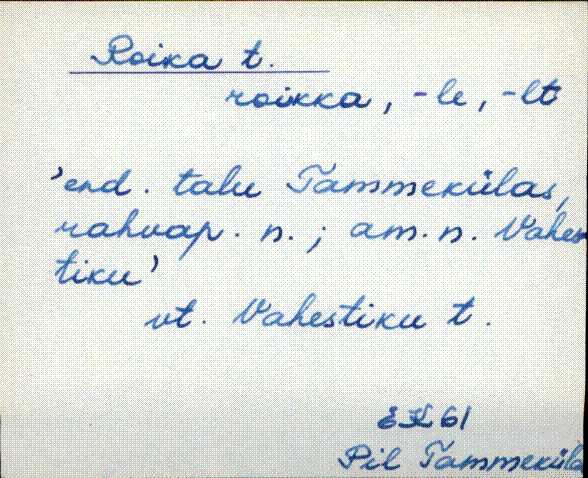 Roika t.
roikka, -le, -lt
'end. talu Tammekülas,
rahvap. n.; am. n. Vahes
tiku'
vt. Vahestiku t.
EK 61
Pil Tammeküla